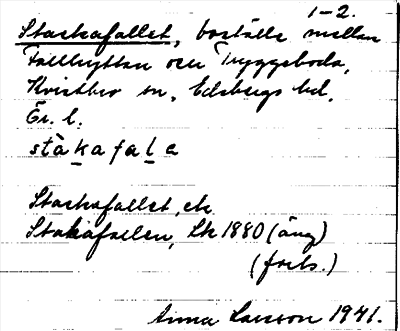 1-2.
Stackafallet, boställe mellan
Fallhyttan och Tryggeboda,
Kvistbro sn, Edsbergs hd,
Ör. l.
stàkafala
Stackafallet, ek
Stakafallen, Lk 1880 (äng)
(forts.)
Anna Larsson 1941.